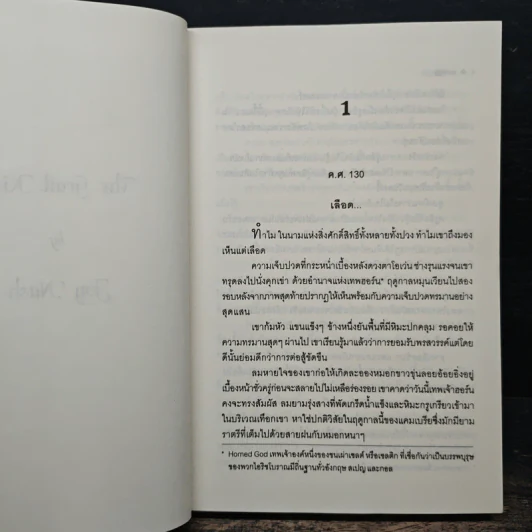 1
ค.ศ. 130
เลือด...
ทำไม ในนามแห่งสิ่งศักดิ์สิทธิ์ทั้งหลายทั้งปวง ทำไมเขาถึงมอง
เห็นแต่เลือด
ความเจ็บปวดที่กระหน่ำเบื้องหลังดวงตาโอเว่น ช่างรุนแรงจนเขา
ทรุดลงไปนั่งคุกเข่า ด้วยอำนาจแห่งเทพฮอร์น* ฤดูกาลหมุนเวียนไปสอง
รอบหลังจากภาพสุดท้ายปรากฏให้เห็นพร้อมกับความเจ็บปวดทรมานอย่าง
สุดแสน
เขาก้มหัว แขนแข็งๆ ข้างหนึ่งยันพื้นที่มีหิมะปกคลุม รอคอยให้
ความทรมานสุดๆ ผ่านไป เขาเรียนรู้มาแล้วว่าการยอมรับพรสวรรค์แต่โดย
ดีนั้นย่อมดีกว่าการต่อสู้ขัดขืน
ลมหายใจของเขาก่อให้เกิดละอองหมอกขาวขุ่นลอยอ้อยอิ่งอยู่
เบื้องหน้าชั่วครู่ก่อนจะสลายไปไม่เหลือร่องรอย เขาคาดว่าวันนี้เทพเจ้าฮอร์น
คงจะทรงสัมผัส ลมยามรุ่งสางที่พัดเกร็ดน้ำแข็งและหิมะกรูเกรียวเข้ามา
ในบริเวณเทือกเขา หาใช่ปกติวิสัยในฤดูกาลนี้ของแคมเบรียซึ่งมักมียาม
ราตรีที่เต็มไปด้วยสายฝนกับหมอกหนาๆ
* Horned God เทพเจ้าองค์หนึ่งของชนเผ่าเซลต์ หรือเซลติก ที่เชื่อกันว่าเป็นบรรพบุรุษ
ของพวกไอริชโบราณมีถิ่นฐานทั่วอังกฤษ สเปญ และกอล